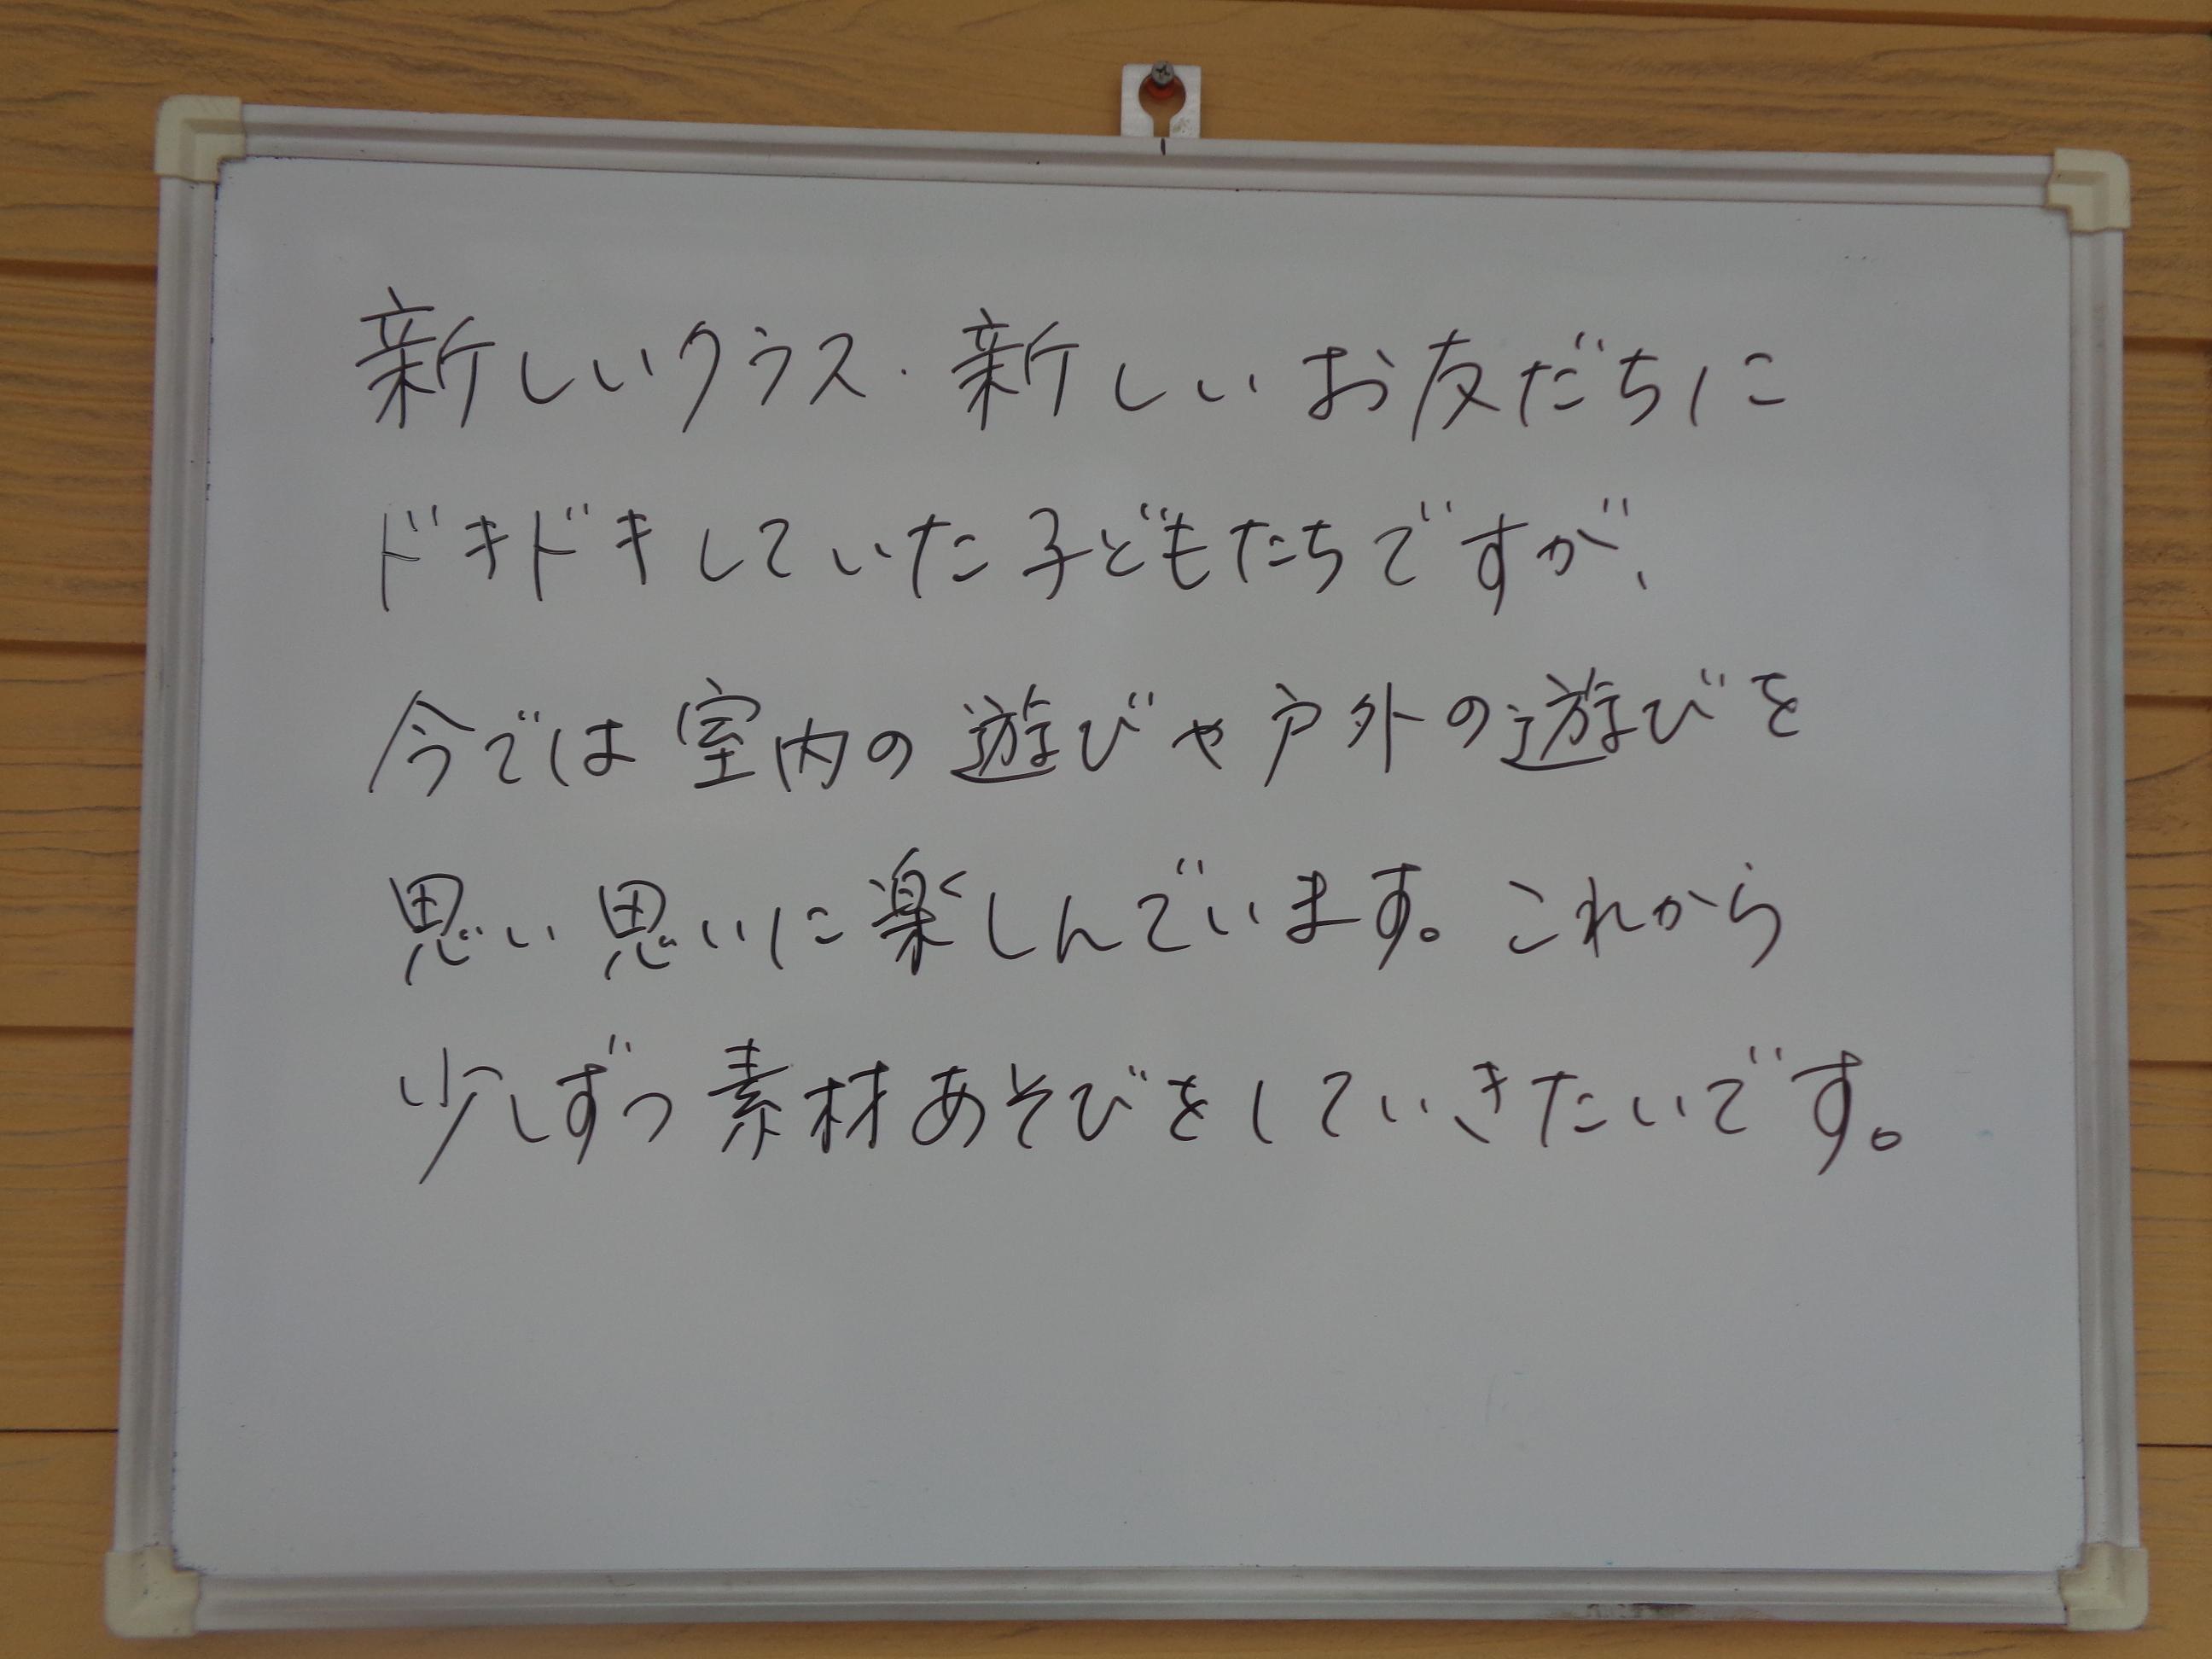 新しいクラス・新しいお友だちに
ドキドキしていた子どもたちですが、
今では室内の遊びや戸外の遊びを
思い思いに楽しんでいます。これから
少しずつ素材あそびをしていきたいです。